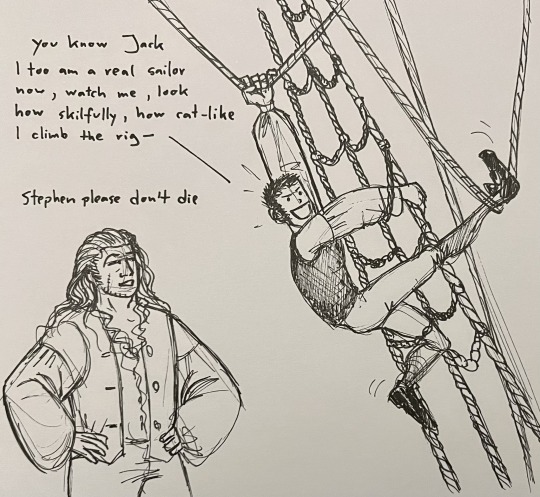 you know Jack
I too am a real sailor
now, watch me, look
how skilfully, how cat-like
I climb the rig—
Stephen please don't die